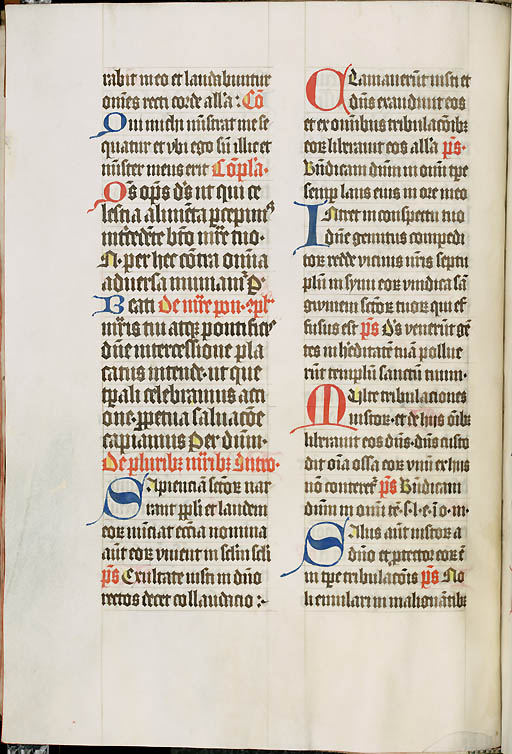 rabit meo et laudabuntur
om̄es recti corde all'a: Cō
Qui michi mīstrat me se
quatur et vbi ego sū illic et
mīster meus erit Cōpl'a.
Os op̄s d's ut qui ce
lestia alimēta p̲cepim9
int̄cedēte bt̄o mr̄e tuo.
N. per hec cōtra om̄ia
aduersa muniam̄ P̲.
Beati De mr̄e pon. 9pl'
mr̄is tui atq̨ pontificis
dn̄e intercessione pla
catus intende. ut que
tp̄ali celebramus acti
one. p̲petua saluacōe
capiamus Per dūm.
De pluribꝫ mr̄ibꝫ Intro.
Sapienciā sct̄oꝝ nar
rant pp̄li et laudem
eoꝝ nūciat eccīa nomina
aūt eoꝝ viuent in sc̄lm sc̄li
p̄s Exultate iusti in dn̄o
rectos decet collaudacio :~
Clamauerūt iusti et
dn̄s exaudiuit eos
et ex om̄ibus tribulacōibꝫ
eoꝝ liberauit eos all'a p̄s.
Bn̄dicam dūm in om̄i tp̄e
semp̲ laus eius in ore meo
Intret in conspectu tuo
dn̄e gemitus compedi
toꝝ redde vicinis nr̄is septu
plū in synu eoꝝ vindica sā
gwinem sct̄oꝝ tuoꝝ qui ef
fusus est p̄s D's venerūt gē
tes in h̄editatē tuā pollue
rūt templū sanctū tuum.
Multe tribulaciones
iustoꝝ. et de hijs om̄ibꝫ
liberauit eos dn̄s. dn̄s custo
dit oīa ossa eoꝝ vnū ex hijs
nō conteret̄ p̄s Bn̄dicam
dūm in om̄i tē. s. l. e. i. o. m.
Salus aūt iustoꝝ a
dn̄o et p̲tector eoꝝ ē
in tp̄e tribulacōis p̄s No
li emulari in malignātibꝫ